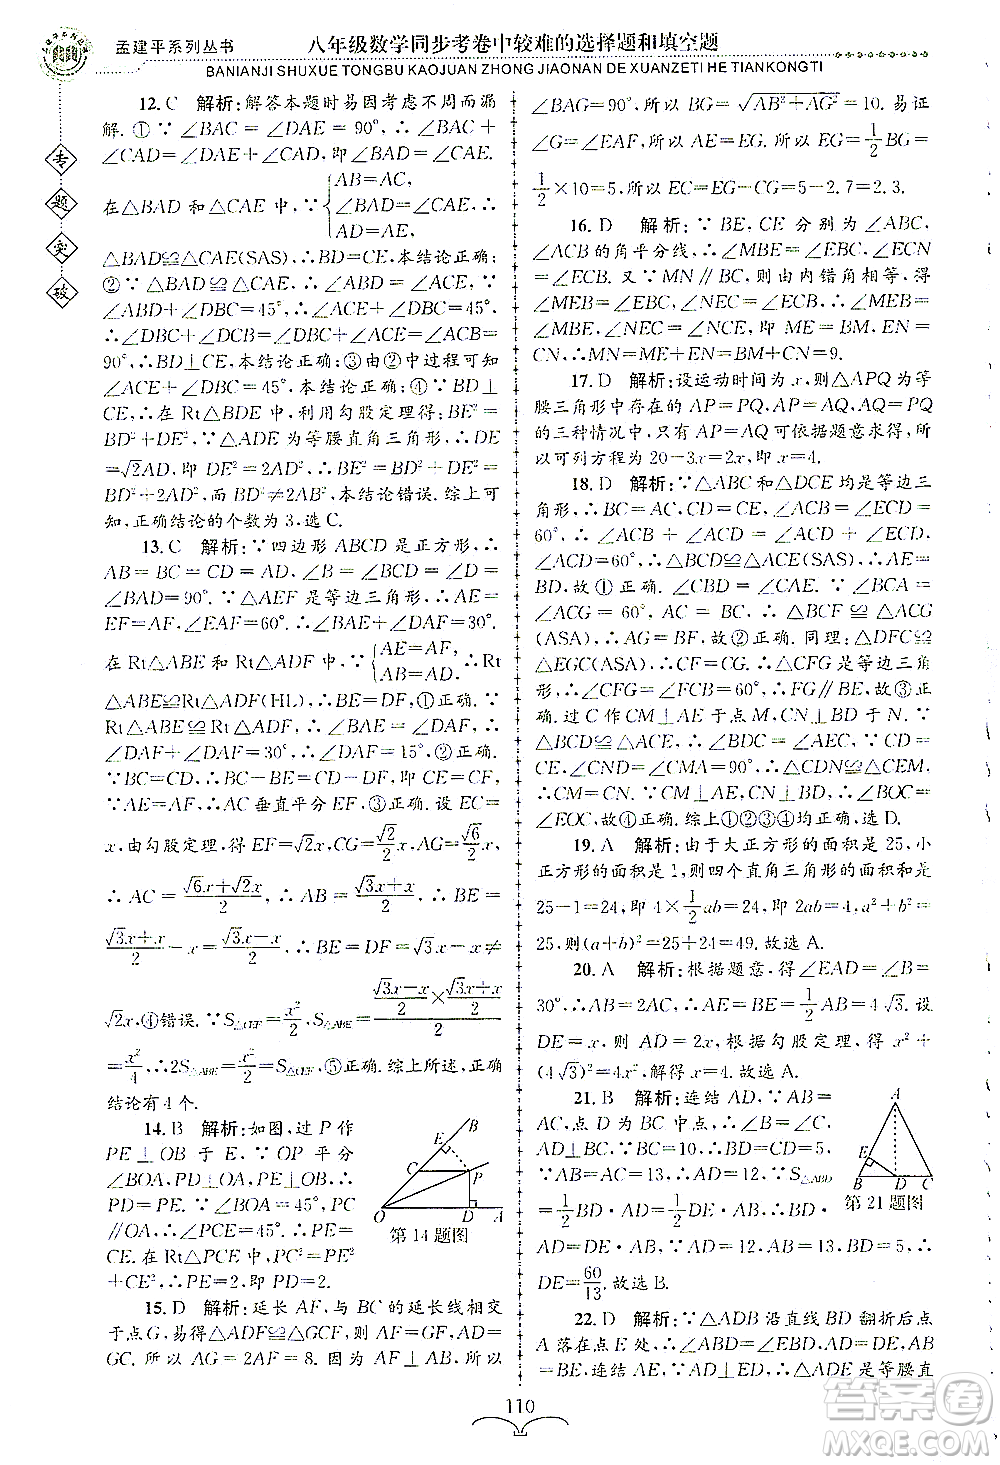 孟建平系列丛书
八年级数学同步考卷中较难的选择题和填空题
BANIANJI SHUXUE TONGBU KAOJUAN ZHONG JIAONAN DE XUANZETI HE TIANKONGTI
专
题
突
破
12. C 解析:解答本题时易因考虑不周而漏
解. ① ∵ ∠BAC = ∠DAE = 90°, ∴ ∠BAC +
∠CAD=∠DAE+∠CAD,即∠BAD=∠CAE.
在△BAD 和△CAE 中, ∵ {AB=AC, ∠BAD=∠CAE, AD=AE, ∴
△BAD≌△CAE(SAS). ∴BD=CE,本结论正确;
② ∵ △BAD ≌ △CAE, ∴ ∠ABD = ∠ACE. ∵
∠ABD+∠DBC=45°, ∴∠ACE+∠DBC=45°.
∴∠DBC+∠DCB=∠DBC+∠ACE+∠ACB=
90°,∴BD⊥CE,本结论正确;③由②中过程可知
∠ACE+∠DBC=45°,本结论正确;④∵BD⊥
CE,∴在 Rt△BDE 中,利用勾股定理得:BE²=
BD²+DE². ∵△ADE 为等腰直角三角形,∴DE=
√2AD,即 DE²=2AD², ∴BE²=BD²+DE²=
BD²+2AD². 而BD²≠2AB²,本结论错误. 综上可
知,正确结论的个数为 3. 选 C.
13. C 解析:∵四边形 ABCD 是正方形,∴
AB = BC = CD = AD, ∠B = ∠BCD = ∠D =
∠BAD=90°. ∵△AEF 是等边三角形,∴AE=
EF=AF, ∠EAF=60°. ∴∠BAE+∠DAF=30°.
在 Rt△ABE 和 Rt△ADF 中, {AE=AF, AB=AD, ∴Rt
△ABE≌Rt△ADF(HL),∴BE=DF,①正确. ∵
Rt△ABE≌Rt△ADF, ∴∠BAE=∠DAF, ∴
∠DAF+∠DAF=30°,∴∠DAF=15°,②正确.
∵BC=CD,∴BC-BE=CD-DF,即 CE=CF,
∵AE=AF,∴AC 垂直平分 EF,③正确. 设 EC=
x,由勾股定理,得 EF=√2x,CG=√2/2x,AG=√6/2x,
∴ AC = (√6x+√2x)/2, ∴ AB = (√3x+x)/2, ∴ BE =
(√3x+x)/2 - x = (√3x-x)/2, ∴BE+DF=√3x-x≠
√2x,④错误. ∵S△CEF=x²/2,S△ABE=((√3x-x)/2×(√3x+x)/2)/2=
x²/4, ∴2S△ABE=x²/2=S△CEF,⑤正确. 综上所述,正确
结论有 4 个.
14. B 解析:如图,过 P 作
PE⊥OB 于 E, ∵OP 平分
∠BOA,PD⊥OA,PE⊥OB,∴
PE=PD. ∵∠BOA=45°,CP
∥OA,∴∠BCP=45°,∴CE=
PE. 在 Rt△CPE 中,∵PC²=PE²
+CE²,∴PE=2,即 PD=2.
B
E
C
P
O
D
A
第 14 题图
15. D 解析:延长 AF,与 BC 的延长线相交
于点 G,易证△ADF≌△GCF,所以 AF=GF,AD=
GC. 所以 AG=2AF=8. 同时 AB⊥AF,所以
∠BAG=90°,所以 BG=√(AB²+AG²)=10. 易证
∠G=∠EAF,所以 AE=EG,所以 EG=1/2BG=
1/2×10=5,所以 EC=EG-CG=5-2.7=2.3.
16. D 解析:∵BE,CE 分别为∠ABC,
∠ACB 的角平分线,∴∠MBE=∠EBC,∠ECN
=∠ECB. 又∵MN∥BC,所以由内错角相等,得
∠MEB=∠EBC,∠NEC=∠ECB. ∴∠MBE=
∠MEB,∠NEC=∠ECN. ∴BM=ME,EN=
CN. ∴MN=ME+EN,即 MN=BM+CN=9.
17. D 解析:设运动时间为 x,则△APQ 为等
腰三角形中存在的 AP=PQ,AP=AQ,AQ=PQ
的三种情况中,只有 AP=AQ 可依据题意求得,所
以可列方程为 20-3x=2x,即 x=4.
18. D 解析:∵△ABC 和△DCE 均是等边三
角形,∴BC=AC,CD=CE,∠ACB=∠ECD=
60°,∴∠ACB+∠ACD=∠ACD+∠ECD,
∠ACD=60°,∴△BCD≌△ACE(SAS),∴AE=
BD,故①正确. ∠CBD = ∠CAE. ∵ ∠BCA =
∠ACG = 60°, AC = BC, ∴ △BCF ≌ △ACG
(ASA),∴AG=BF,故②正确. 同理:△DFC≌
△EGC(ASA),∴CF=CG. ∴△CFG 是等边三角
形,∴∠CFG=∠FCB=60°,∴FG∥BE,故③正
确. 过 C 作 CM⊥AE 于点 M,CN⊥BD 于 N. ∵
△BCD≌△ACE,∴∠BDC=∠AEC,∵CD=
CE,∠CND=∠CMA=90°,∴△CDN≌△CEM,
∴CM=CN. ∵CM⊥AE,CN⊥BD,∴∠BOC=
∠EOC,故④正确. 综上①②③④均正确,选 D.
19. A 解析:由于大正方形的面积是 25,小
正方形的面积是 1,则四个直角三角形的面积是
25-1=24,即 4×1/2ab=24,即 2ab=24,a²+b²=
25,则(a+b)²=25+24=49. 故选 A.
20. A 解析:根据题意,得∠EAD=∠B=
30°,∴AB=2AC,∴AE=BE=1/2AB=4√3. 设
DE=x,则 AD=2x,根据勾股定理,得(2x)²-x²=
(4√3)²,解得 x=4. 故选 A.
21. B 解析:连结 AD,∵AB=
AC,点 D 为 BC 中点,∴∠B=∠C,
AD⊥BC. ∵BC=10,∴BD=CD=5.
∵AB=AC=13,∴AD=12. ∵S△ABD
=1/2BD·AD=1/2DE·AB,∴BD·
AD=DE·AB,∴5×12=DE·13,∴
DE=60/13. 故选 B.
A
E
B
D
C
第 21 题图
22. D 解析:∵△ADB 沿直线 BD 翻折后点
A 落在点 E 处,∴∠ADB=∠EBD,AD=ED,AB
=BE,连结 AE,∵AD⊥ED,∴△ADE 是等腰直
110
答案卷
MXQE.COM